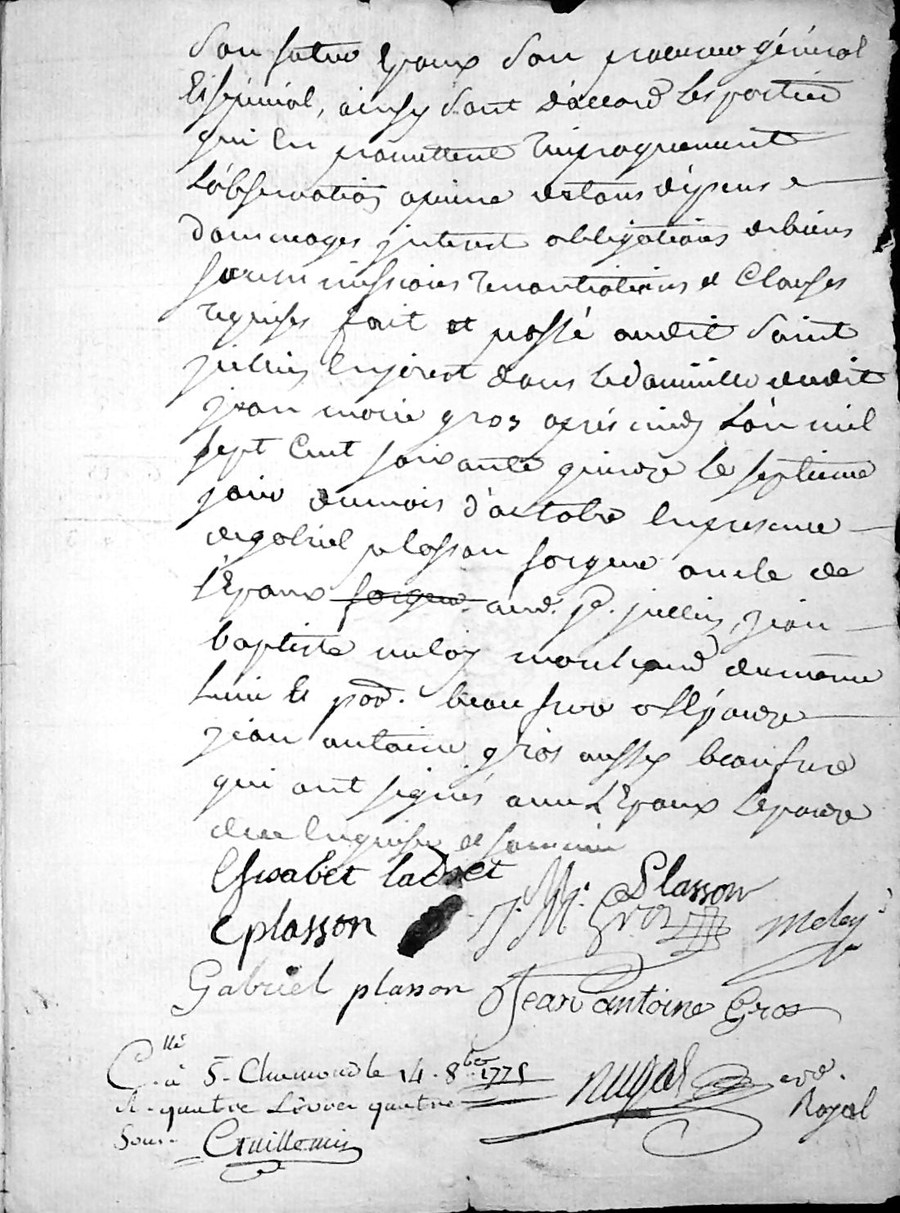 Son futur Epoux son procureur général
Et spécial, ainsy sont d'accord les parties
qui En promettent Reciproquement
L'observation a peine de tous dépens
dommages interest obligations de biens
soumissions Renontiations et Clauses
requises fait et passé audit Saint
jullien Enjarest dans le domicille dudit
jean marie gros après midy L'an mil
sept Cent soixante quinze le septieme
jour du mois d'octobre En presence
de gabriel plasson forgeur oncle de
L'Epoux forgeur aud. St. jullien, jean
baptiste meley marchand du meme
Lieu Et par. beaufrere de l'Epouze
jean antoine gros aussy beaufrere
qui ont signés avec L'Epoux L'epouze
de ce Enquis et sommés
Elisabet ladret
J. M. Gros Plasson
C plasson
meley
Gabriel plasson
Jean antoine Gros
C.llé à St. Chamond le 14. 8bre 1775
R. quatre Livres quatre
Sous. Guillemin
nugal
Royal